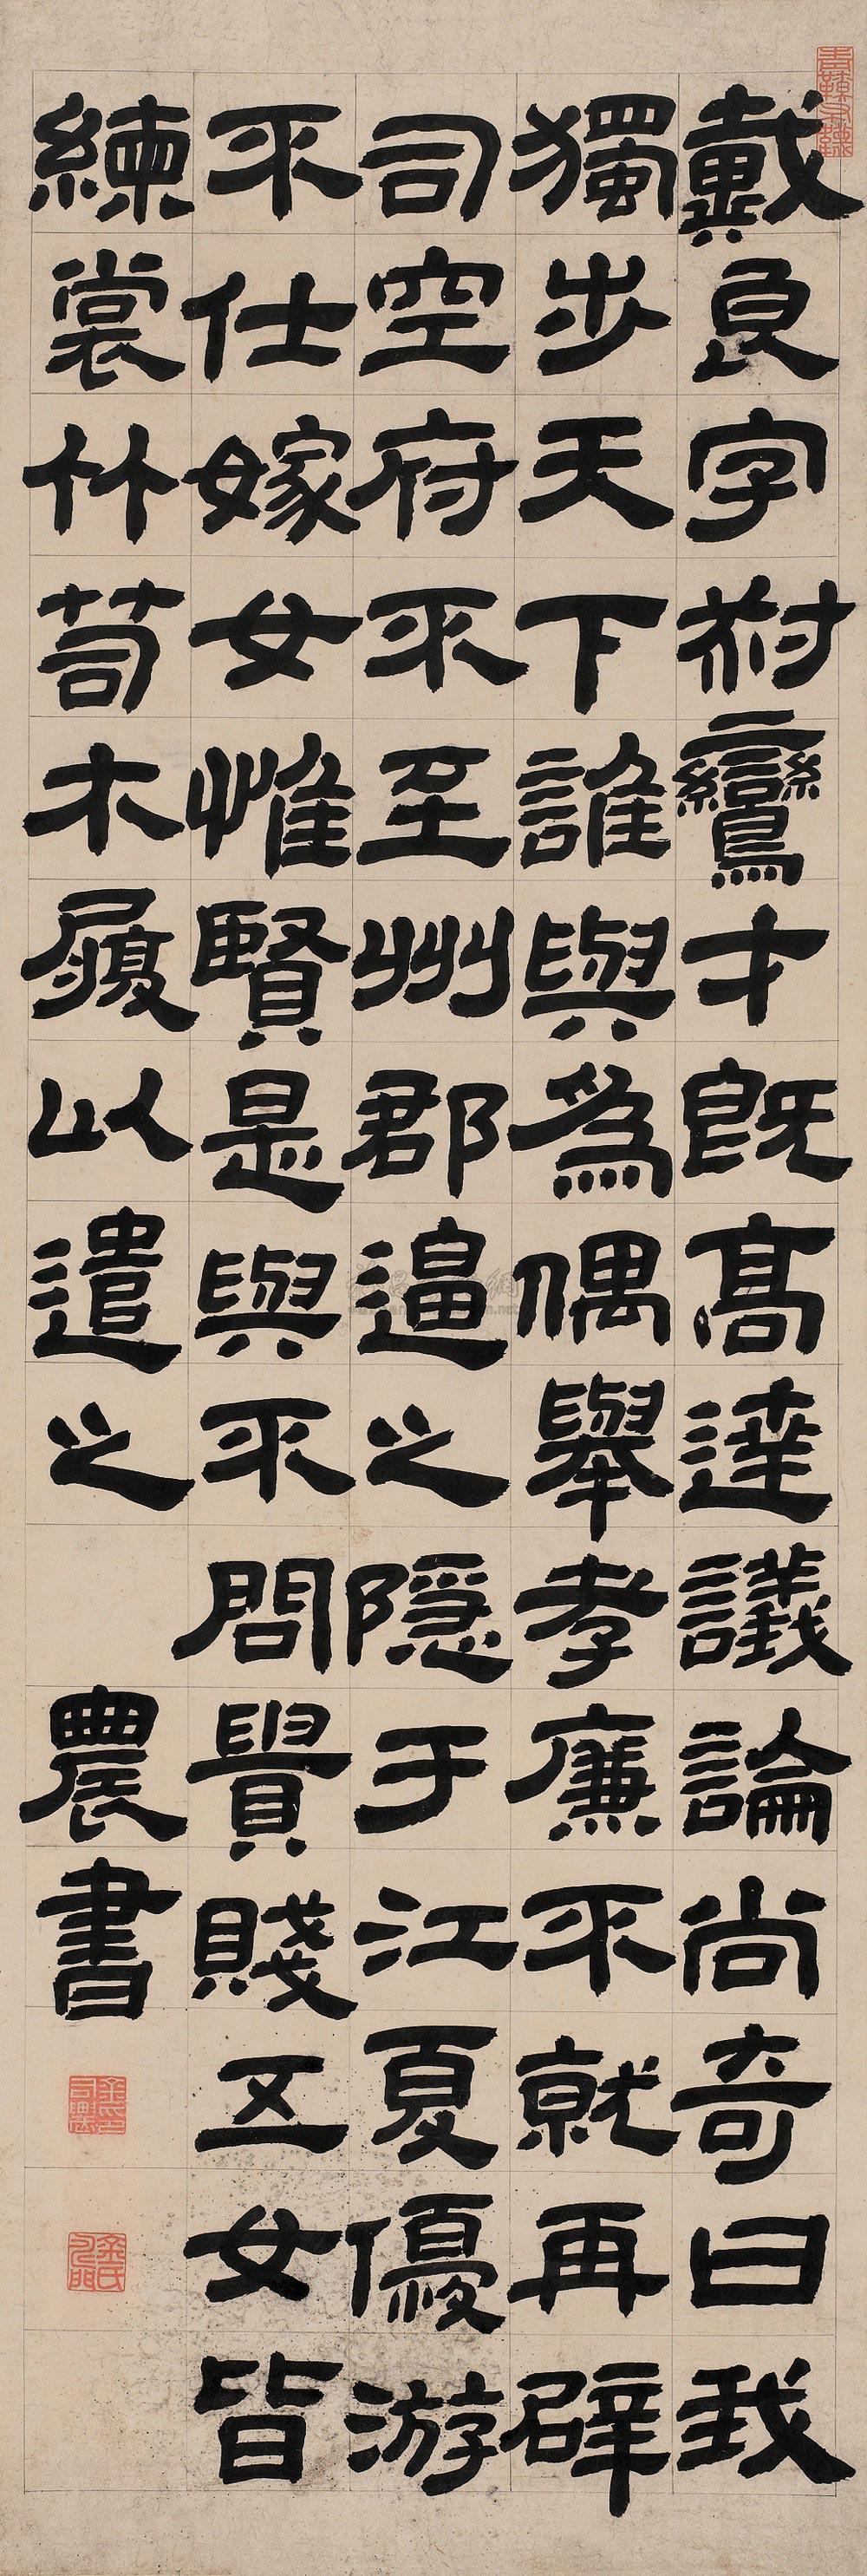 戴良字叔鸞才既高達議論尚奇曰我
獨步天下誰與為偶舉孝廉不就再辟
司空府不至州郡逼之隱于江夏優游
不仕嫁女惟賢是與不問貴賤五女皆
練裳竹笥木履以遣之
農書